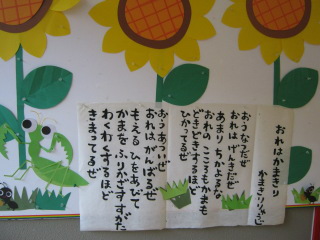 おれはかまきり
かまきりりゅうじ
おうなつだぜ
おれは げんきだぜ
あまり ちかよるな
おれの こころもかまも
どきどきするほど
ひかってるぜ
おうあついぜ
おれはがんばるぜ
もえる ひをあびて
かまを ふりかざす すがた
わくわくするほど
きまってるぜ